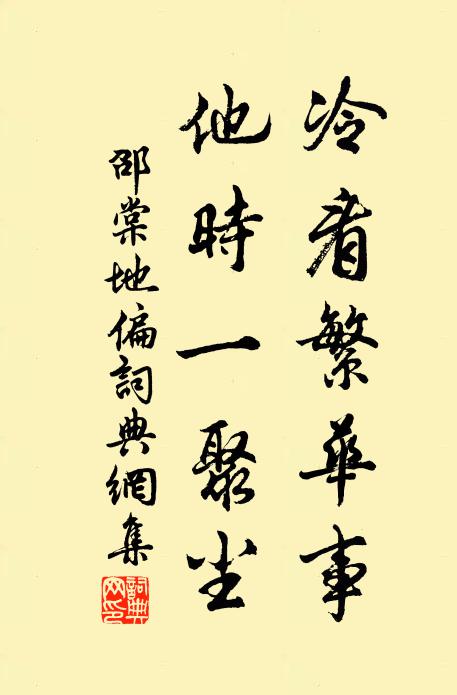 冷看繁華事
他時一聚尘
邵棠地偏詞典網集
詞典网印